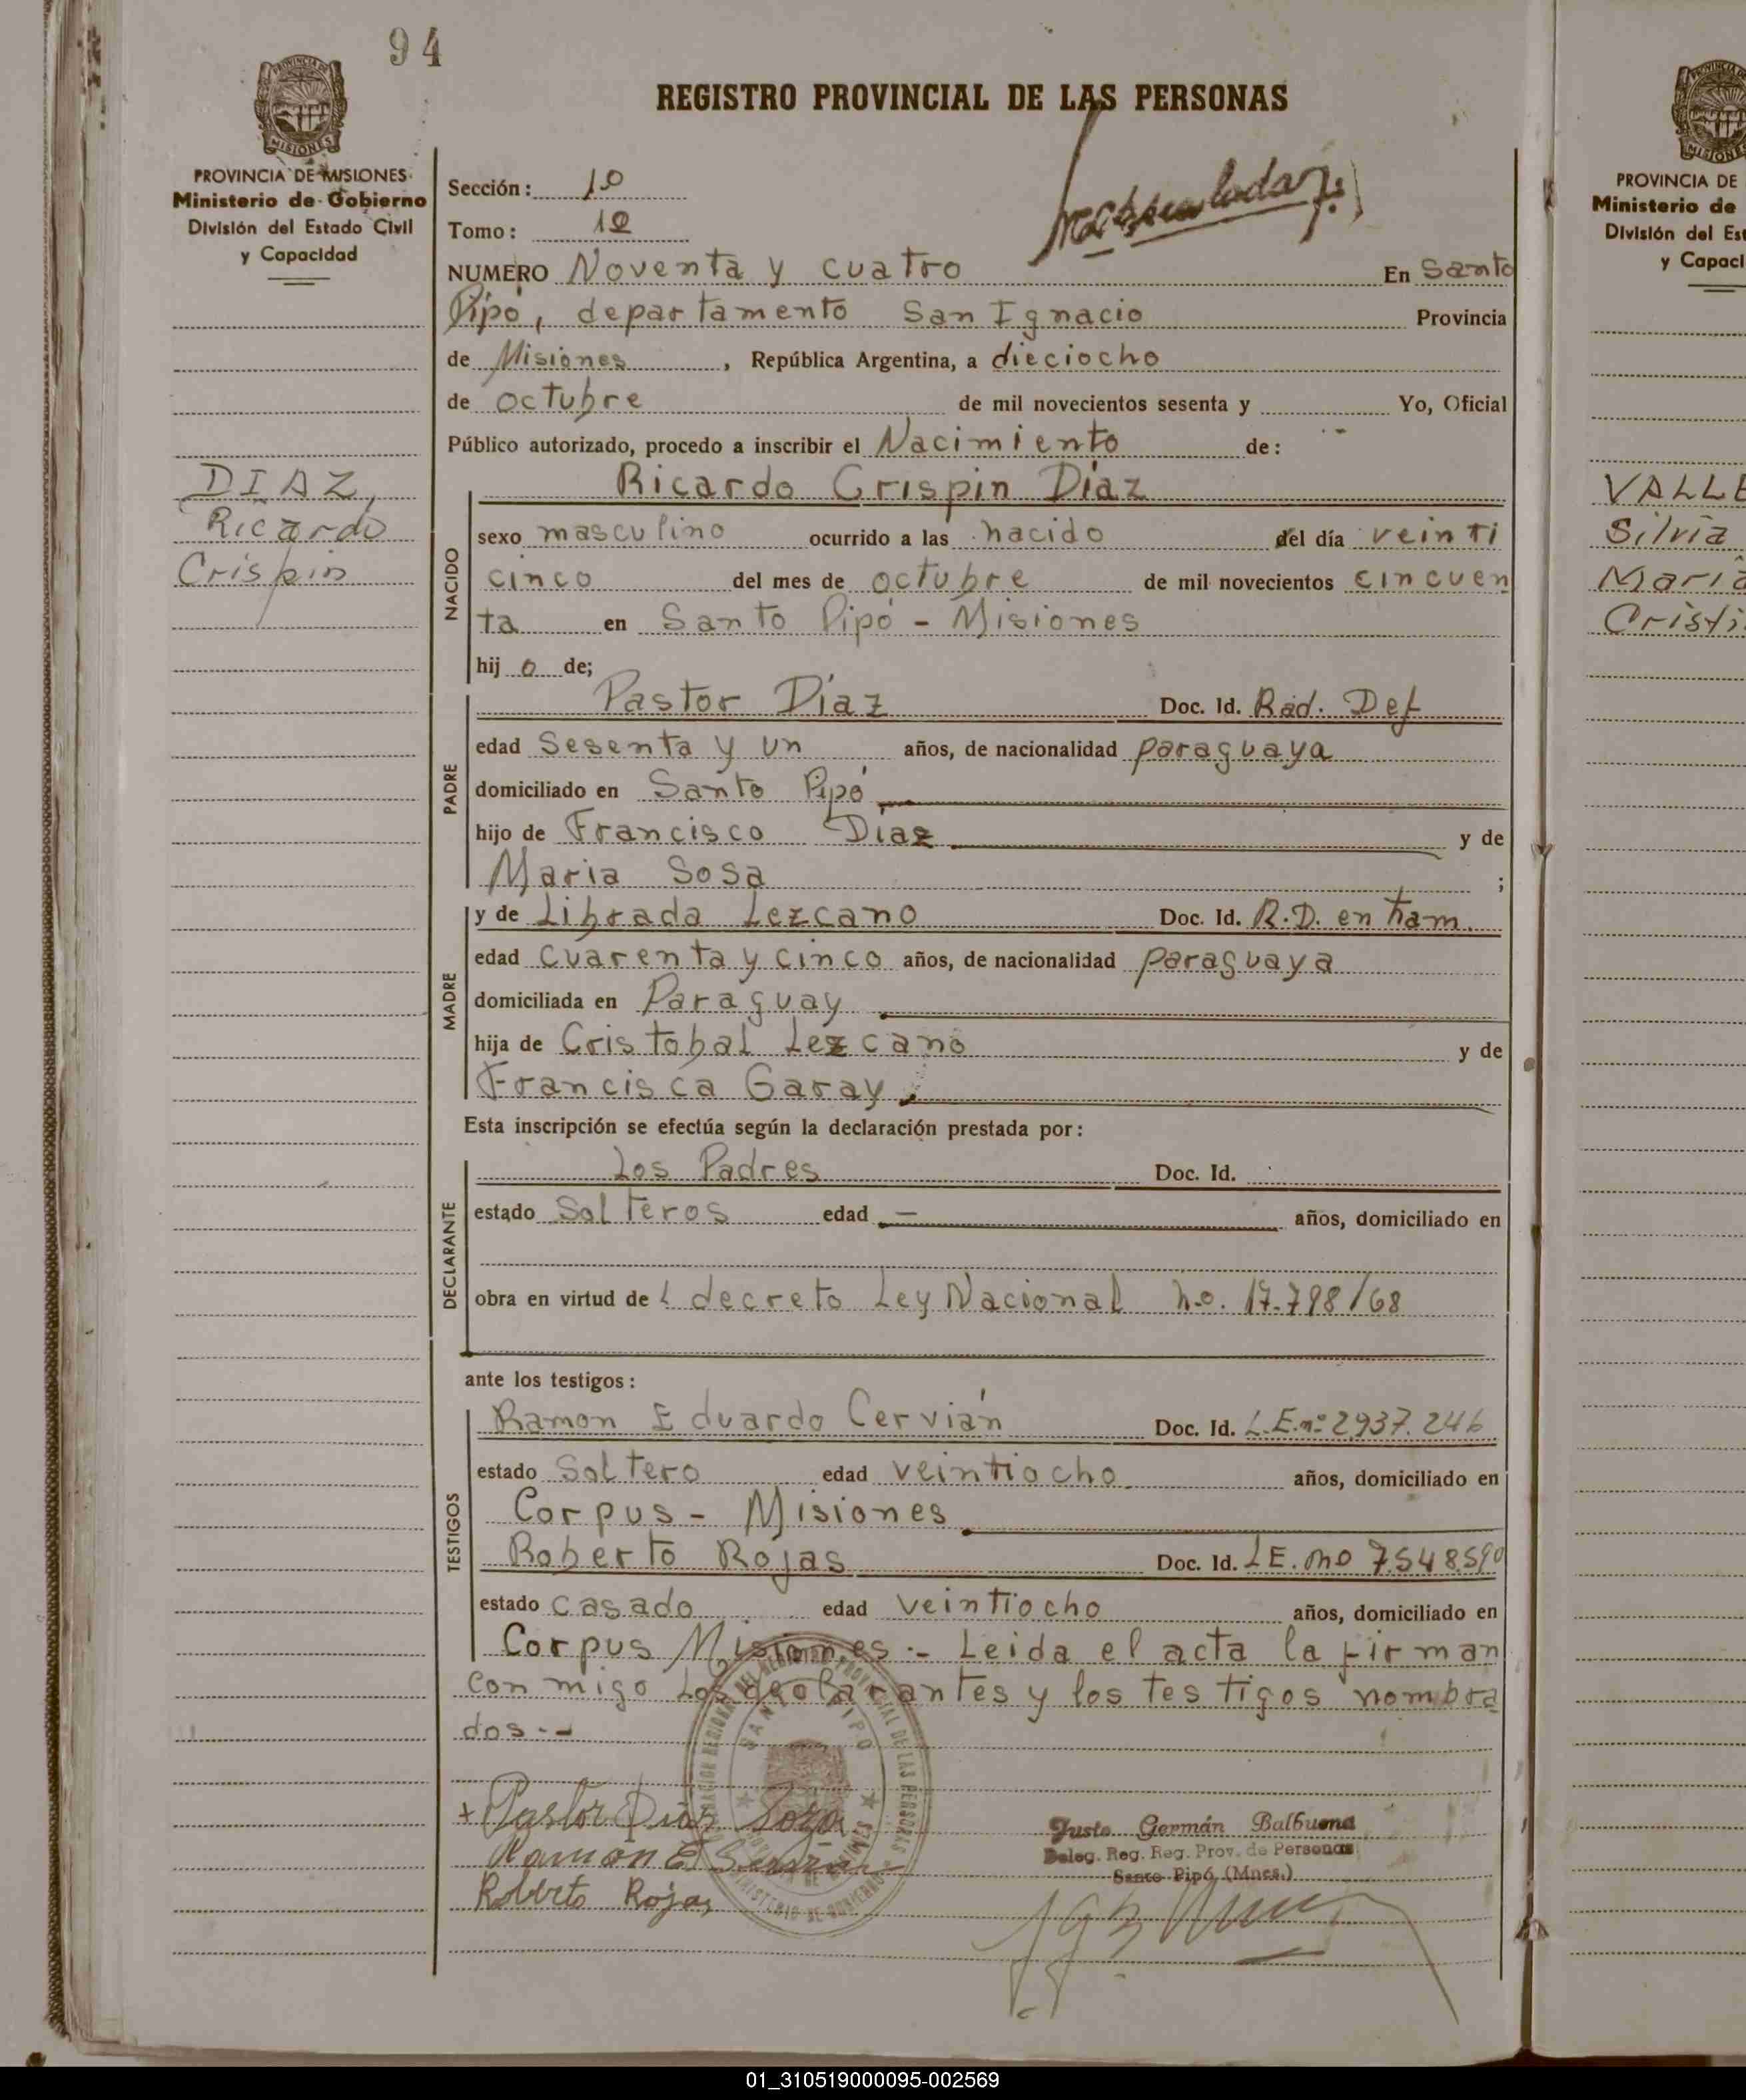 94
REGISTRO PROVINCIAL DE LAS PERSONAS
MISIONES
PROVINCIA DE MISIONES
Ministerio de Gobierno
División del Estado Civil
y Capacidad
Sección: 1º
Tomo: 1º
NUMERO Noventa y cuatro En Santo
Pipó, departamento San Ignacio Provincia
de Misiones, República Argentina, a dieciocho
de octubre de mil novecientos sesenta y Yo, Oficial
Público autorizado, procedo a inscribir el Nacimiento de:
DIAZ,
Ricardo
Crispin
Ricardo Crispin Díaz
NACIDO
sexo masculino ocurrido a las nacido del día veinti
cinco del mes de octubre de mil novecientos cincuen
ta en Santo Pipó - Misiones
hij o de;
PADRE
Pastor Díaz Doc. Id. Rad. Def
edad Sesenta y un años, de nacionalidad paraguaya
domiciliado en Santo Pipó
hijo de Francisco Díaz y de
Maria Sosa ;
MADRE
y de Librada Lezcano Doc. Id. R.D. en tram.
edad cuarenta y cinco años, de nacionalidad paraguaya
domiciliada en Paraguay
hija de Cristobal Lezcano y de
Francisca Garay
Esta inscripción se efectúa según la declaración prestada por:
DECLARANTE
Los Padres Doc. Id.
estado Solteros edad — años, domiciliado en
obra en virtud de l decreto Ley Nacional n.o. 17.798/68
ante los testigos:
TESTIGOS
Ramon Eduardo Cervián Doc. Id. L.E.nº 2937.246
estado Soltero edad veintiocho años, domiciliado en
Corpus - Misiones
Roberto Rojas Doc. Id. LE. no 7.548.590
estado casado edad veintiocho años, domiciliado en
Corpus Misiones.- Leida el acta la firman
con migo los declarantes y los testigos nombra
dos.-
Pastor Diaz Soza
Ramon E
Roberto Rojas
Justo Germán Balbuena
Deleg. Reg. Reg. Prov. de Personas
Santo Pipó (Mnes.)
PROVINCIA DE
Ministerio de
División del Est
y Capaci
VALLE
Silvia
Maria
Cristi
01_310519000095-002569